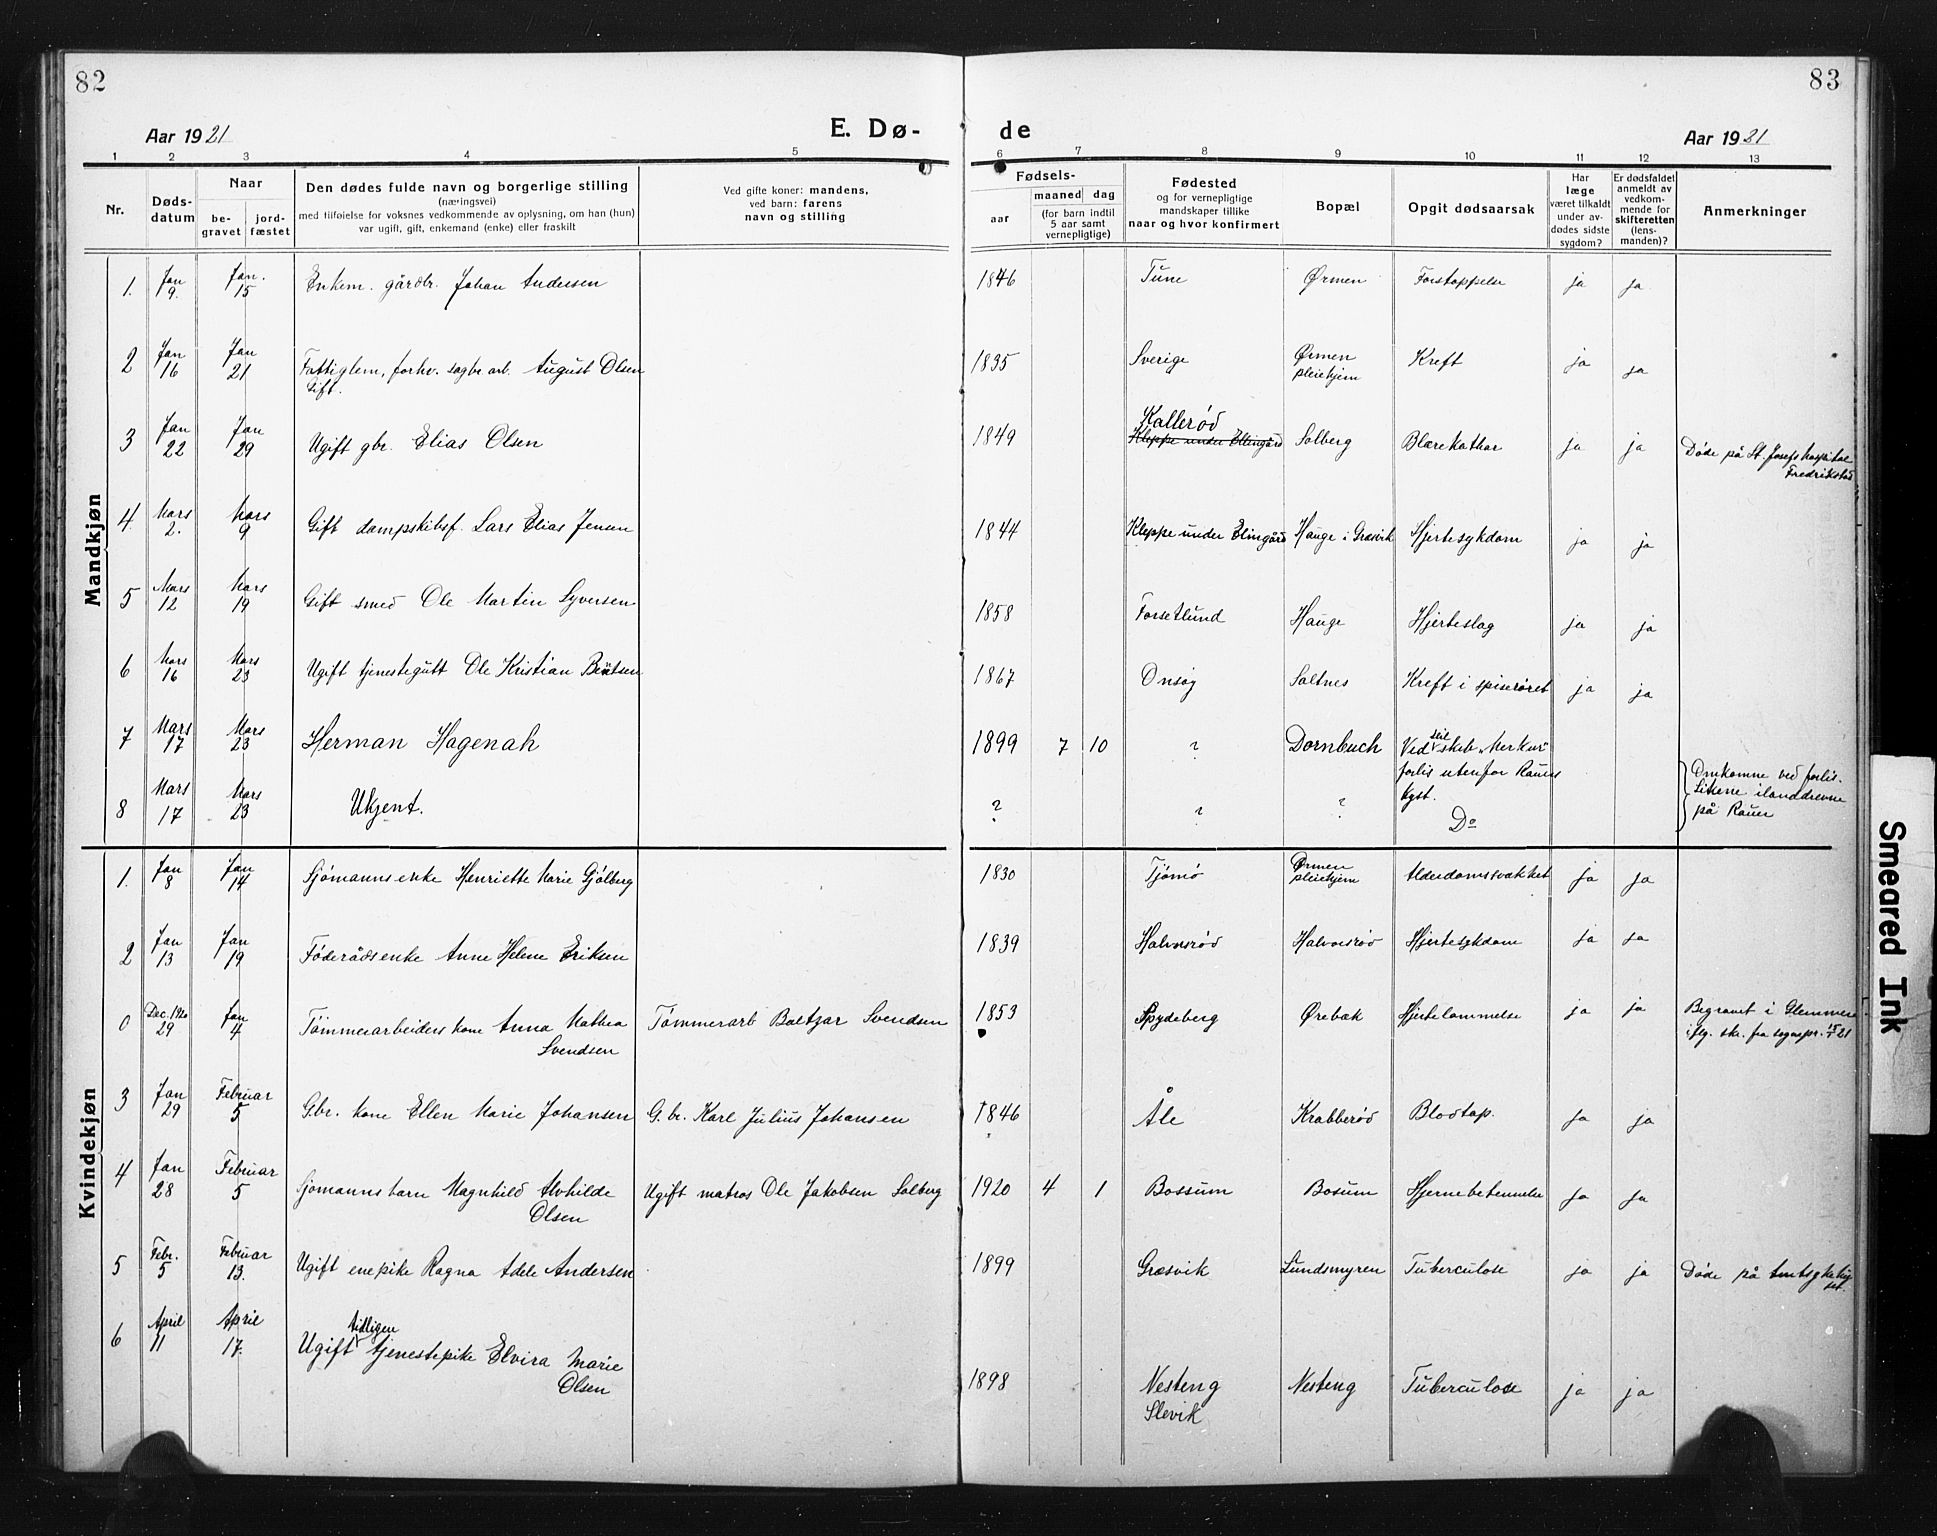 82
83
Aar 1921
E. Dø-
de
Aar 1921
1 2 3 4 5 6 7 8 9 10 11 12 13
Nr.
Døds-
datum
Naar
be-
gravet
jord-
fæstet
Den dødes fulde navn og borgerlige stilling
(næringsvei)
med tilføielse for voksnes vedkommende av oplysning, om han (hun)
var ugift, gift, enkemand (enke) eller fraskilt
Ved gifte koner: mandens,
ved barn: farens
navn og stilling
Fødsels-
aar
maaned dag
(for barn indtil
5 aar samt
vernepligtige)
Fødested
og for vernepligtige
mandskaper tillike
naar og hvor konfirmert
Bopæl
Opgit dødsaarsak
Har
læge
været tilkaldt
under av-
dødes sidste
sygdom?
Er dødsfaldet
anmeldt av
vedkom-
mende for
skifteretten
(lens-
manden)?
Anmerkninger
Mandkjøn
1. Jan 9. Jan. 15 Enkem. gårdbr. Johan Andersen 1846 Tune Ørmen Forstoppelse ja ja
2 Jan 16 Jan 21 Fattiglem, forhv. sagbr. arb. August Olsen 1835 Sverige Ørmen pleiehjem Kreft ja ja
Gift.
3 Jan 22 Jan 29 Ugift gbr. Elias Olsen 1849 Kallerød Kleppe under Ellingård Solberg Blærekathar ja ja Døde på St. Josefs hospital
Fredrikstad
4 Mars 2. Mars 9 Gift dampskibsf. Lars Elias Jensen 1844 Kleppe under Elingård Hauge i Græsvik Hjertesykdom ja ja
5 Mars 12 Mars 19 Gift smed Ole Martin Syversen 1858 Forsetlund Hauge Hjerteslag ja ja
6 Mars 16 Mars 23 Ugift tjenestegutt Ole Kristian Berntsen 1867 Onsøy Saltnes Kreft i spiserøret ja ja
7 Mars 17 Mars 23 Herman Hagenah 1899 7 10 ? Dornbuch Ved seil skib "Merkur"
forlis utenfor Rauer
kyst.
8 Mars 17 Mars 23 Ukjent. ? ? ? Do
Omkomne ved forlis.
Likene ilanddrevne
på Rauer
Kvindekjøn
1. Jan 8 Jan 14 Sjømannsenke Henriette Marie Gjølberg 1830 Tjømø Ørmen pleiehjem Alderdomssvakhet ja ja
2 Jan 13 Jan 19 Føderådsenke Anne Helene Eriksen 1839 Halvorsrød Halvorsrød Hjertesykdom ja ja
0 Dec. 1920 29 Jan 4 Tømmerarbeiders kone Anna Mathea Tømmerarb Baltzar Svendsen 1853 Spydeberg Ørebæk Hjertelammelse ja ja Begravet i Glemmen
Svendsen
iflg. skr. fra sognepr. 21
3 Jan 29 Februar 5 Gbr. kone Ellen Marie Johansen G.br. Karl Julius Johansen 1846 Åle Krabberød Blodtap. ja ja
4 Jan 28 Februar 5 Sjømannsbarn Magnhild Alvhilde Ugift matros Ole Jakobsen Solberg 1920 4 1 Bossum Bosum Hjernebetennelse ja ja
Olsen
5 Febr. 5 Februar 13. Ugift enepike Ragna Adele Andersen 1899 Græsvik Lundsmyren Tuberculose ja ja Døde på Amtsykehu-
set.
6 April 11 April 17. Ugift tidligere tjenestepike Elvira Marie
Olsen
1898 Nesteng Nesteng Tuberculose ja ja
Slevik
Smeared Ink